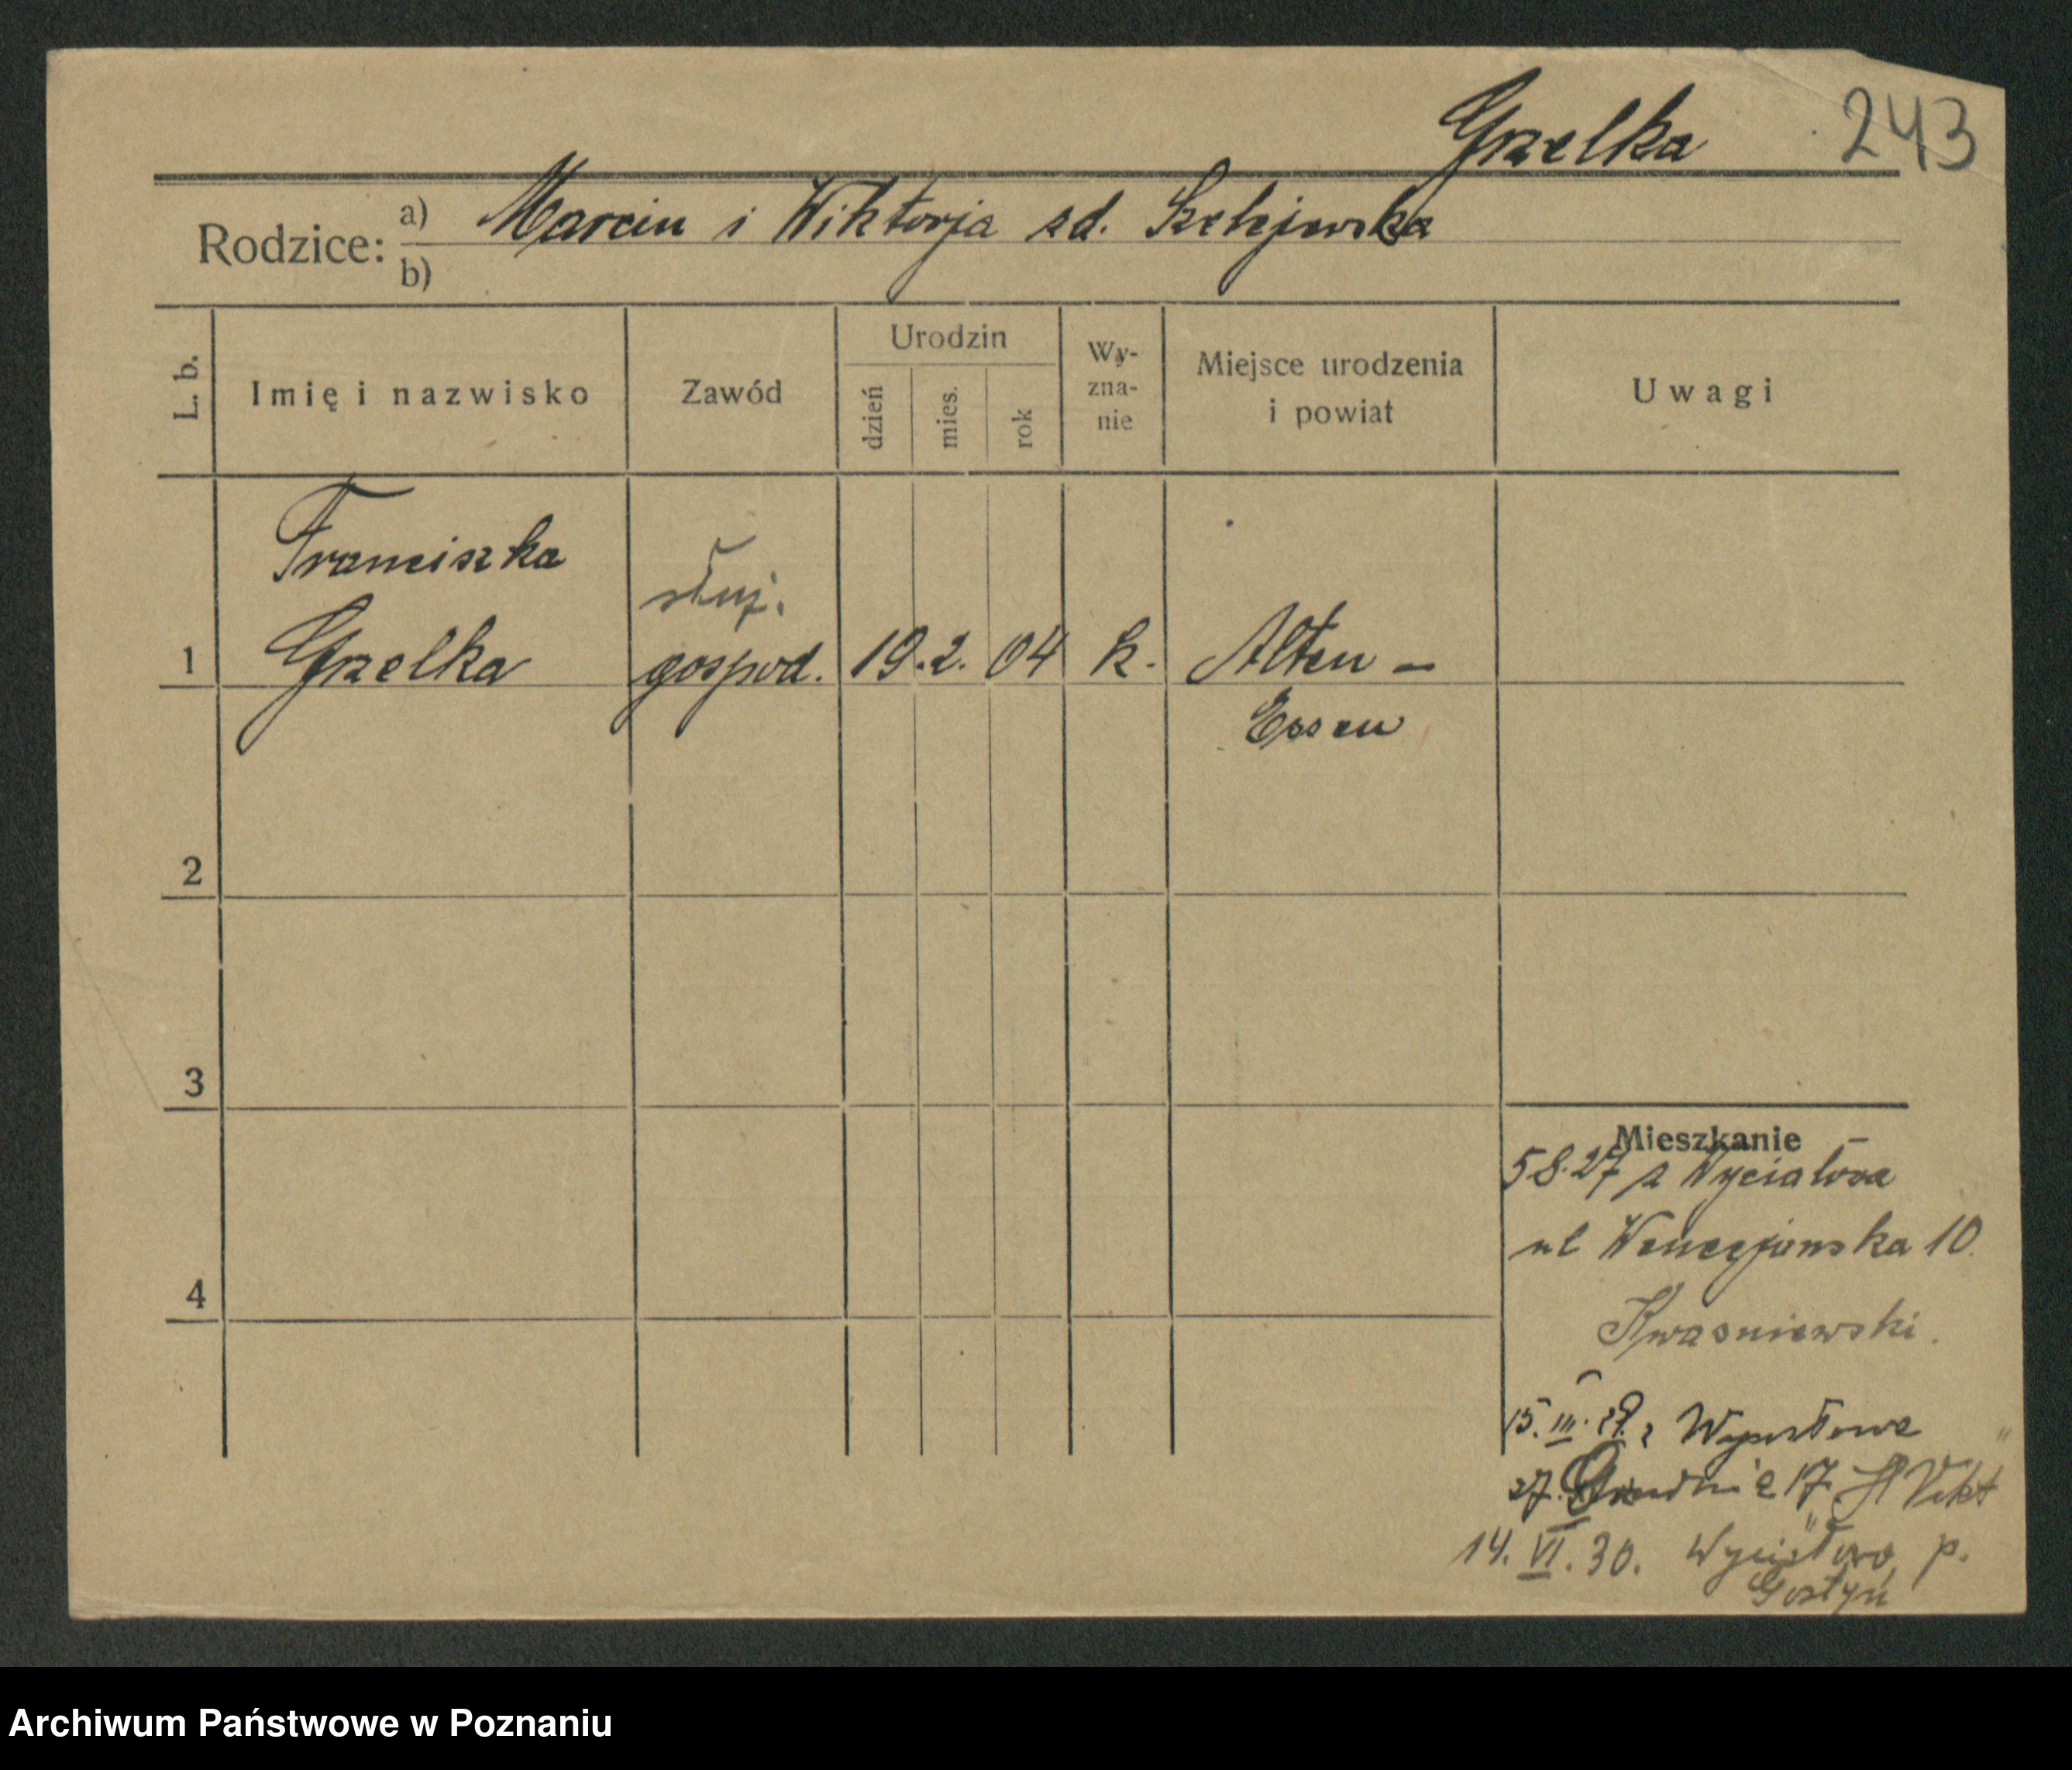 Grzelka 243
Rodzice: a) Marcin i Wiktorja zd. Szelejewska
b)
L. b. Imię i nazwisko Zawód Urodzin dzień mies. rok Wy-zna-nie Miejsce urodzenia i powiat Uwagi
Franciszka
służ.
1 Grzelka gospod. 19. 2. 04 k. Alten -
Essen
2
3
4
Mieszkanie
5 8. 27 z Wyciałowa
ul Wenecjanska 10
Kwasniewski.
15. III. 29. z
27. 17
14. VI. 30. p.
Gostyń
Archiwum Państwowe w Poznaniu